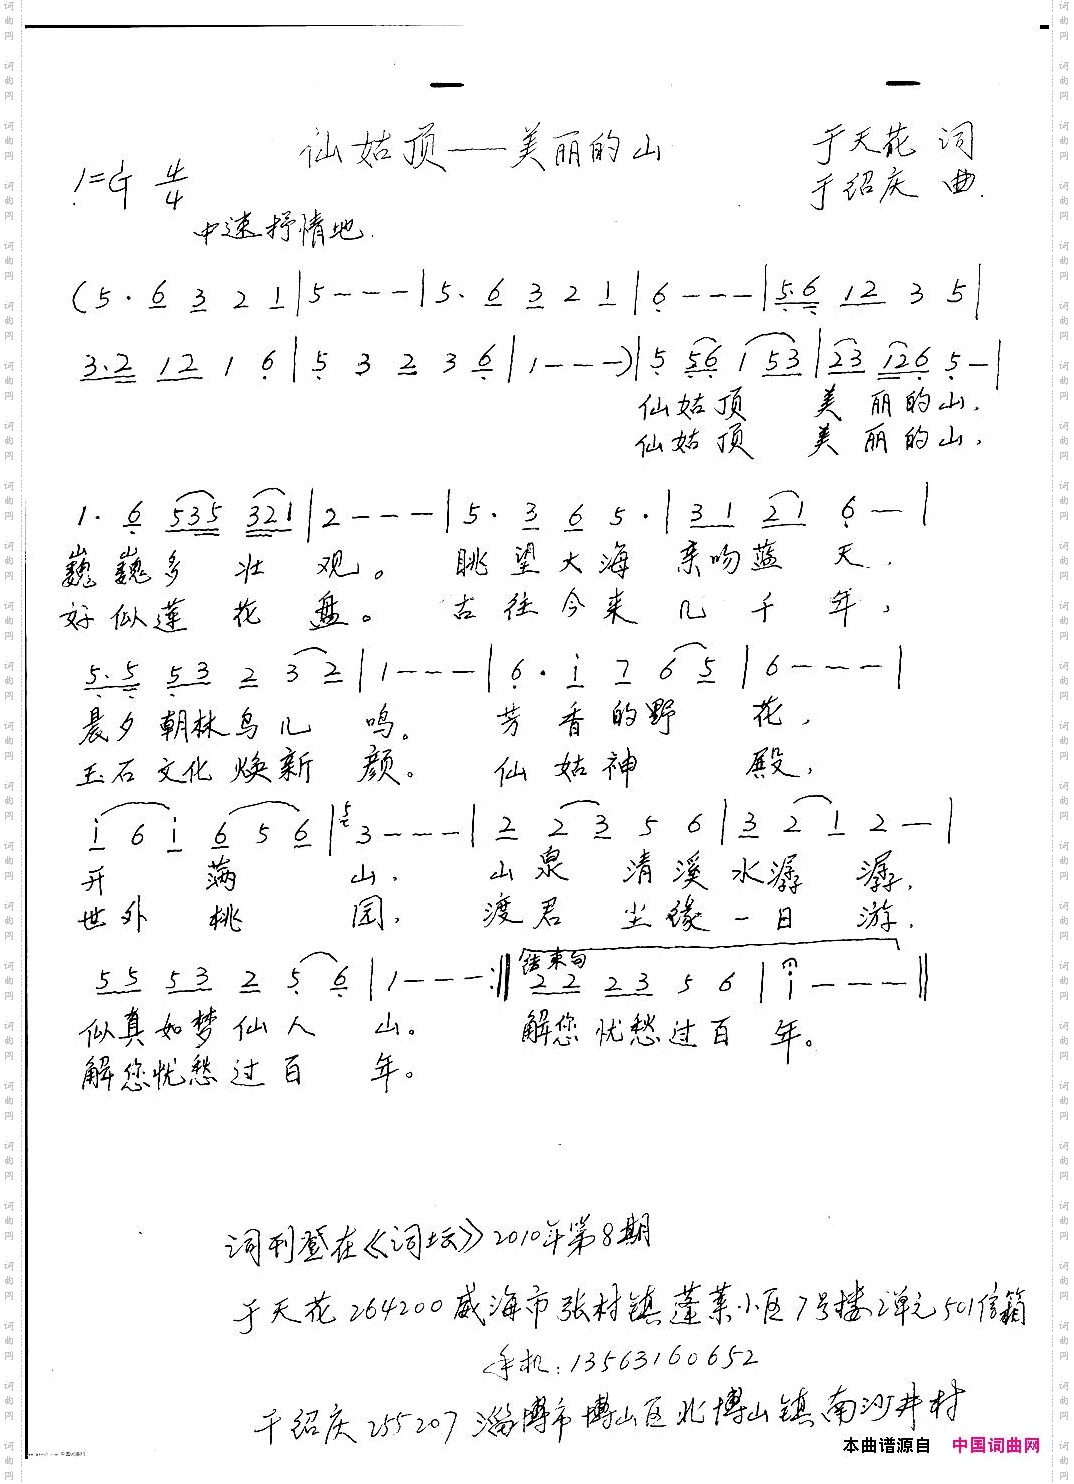 仙姑顶——美丽的山
于天花 词
1=G 4/4
于绍庆 曲.
中速抒情地.
(5. 6 3 2 1|5---|5. 6 3 2 1|6---|5.6 12 3 5|
3.2 12 1 6|5 3 2 3 6|1---)|5 56 1 53|23 126 5-|
仙姑顶 美丽的山,
仙姑顶 美丽的山,
1. 6 535 321|2---|5. 3 6 5.|31 21 6-|
巍巍多壮观。 眺望大海 亲吻蓝天,
好似莲花盘。 古往今来 几千年,
5.5 53 2 3 2|1---|6. i 7 6 5|6---|
晨夕朝林鸟儿鸣。 芳香的野花,
玉石文化焕新颜。 仙姑神殿,
i 6 i 6 5 6|5 3---|2 2 3 5 6|3 2 1 2-|
开满山, 山泉清溪水潺潺,
世外桃园, 渡君尘缘一日游,
结束句
55 53 2 5 6|1---:‖22 23 5 6|i---‖
似真如梦仙人山。 解您忧愁过百年。
解您忧愁过百年。
词刊登在《词坛》2010年第8期
于天花 264200 威海市张村镇蓬莱小区7号楼2单元501信箱
手机:13563160652
于绍庆 255207 淄博市博山区北博山镇南沙井村
本曲谱源自 中国词曲网